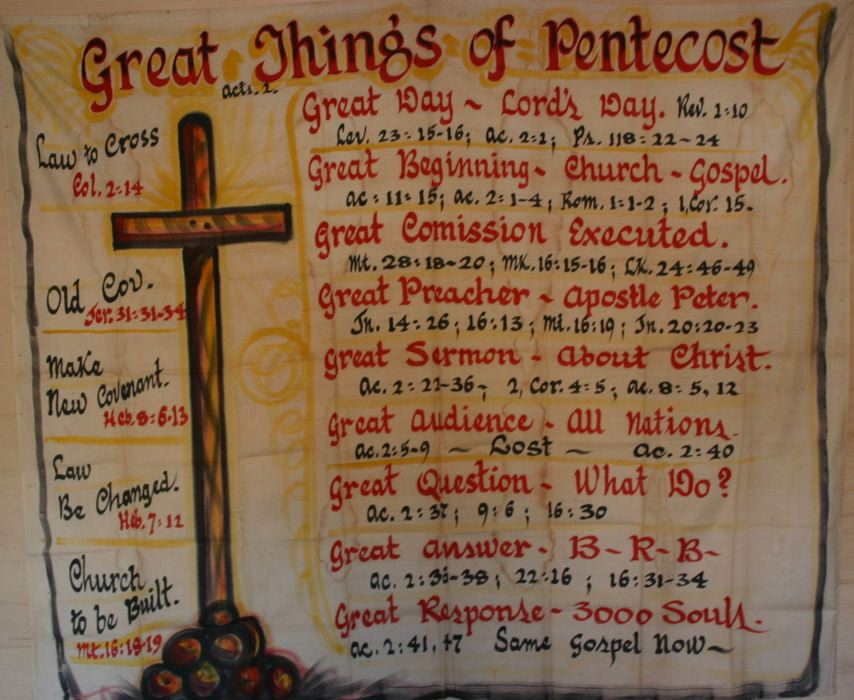 Great Things of Pentecost
acts. 2.
Law to Cross
Col. 2:14
Old Cov.
Jer. 31:31-34
Make
New Covenant.
Heb. 8:6-13
Law
Be Changed.
Heb. 7:12
Church
to be Built.
Mt. 16:18-19
Great Day ~ Lord's Day. Rev. 1:10
Lev. 23:15-16; ac. 2:1; Ps. 118:22-24
Great Beginning - Church - Gospel.
ac: 11:15; ac. 2:1-4; Rom. 1:1-2; 1, Cor. 15.
Great Comission Executed.
Mt. 28:18-20; Mk. 16:15-16; Lk. 24:46-49
Great Preacher ~ apostle Peter.
Jn. 14:26; 16:13; Mt. 16:19; Jn. 20:20-23
Great Sermon - about Christ.
ac. 2:22-36; 2, Cor. 4:5; ac. 8:5, 12
Great audience - all Nations.
ac. 2:5-9 ~ Lost ~ ac. 2:40
Great Question - What Do?
ac. 2:37; 9:6; 16:30
Great answer - B-R-B-
ac. 2:36-38; 22:16; 16:31-34
Great Response - 3000 Souls.
ac. 2:41, 47 Same gospel Now ~